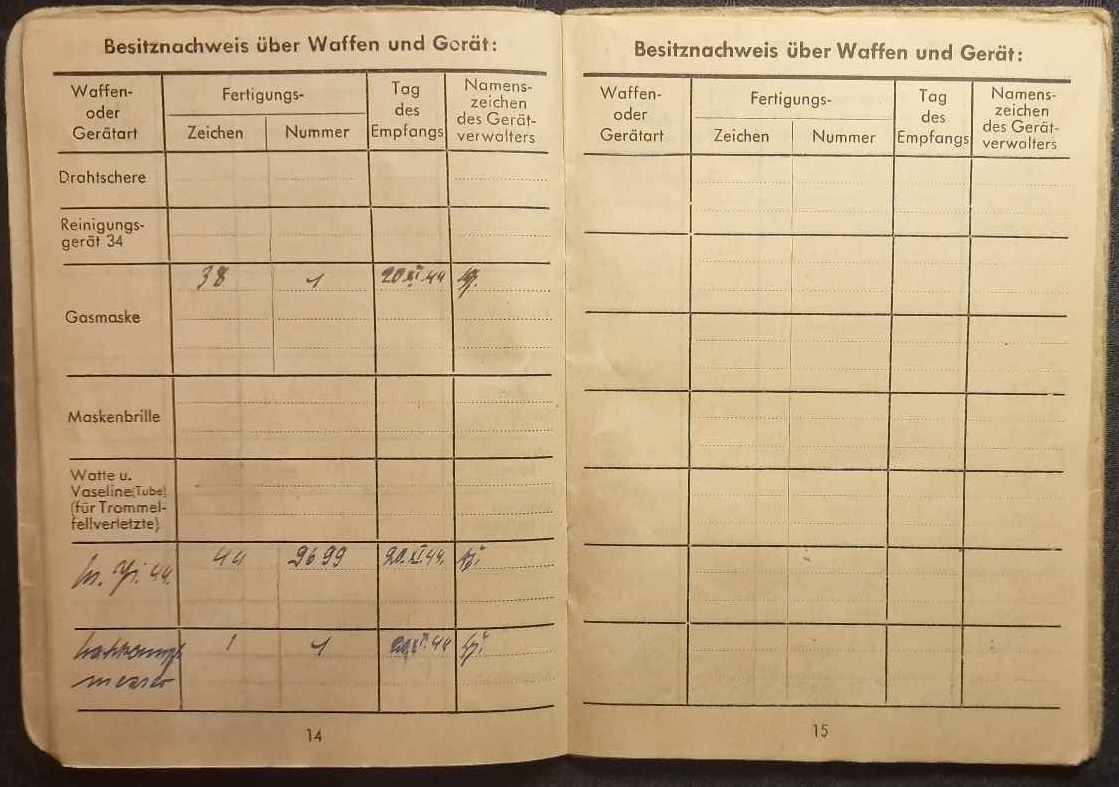 Besitznachweis über Waffen und Gerät:
Waffen-
oder
Gerätart
Fertigungs-
Zeichen
Nummer
Tag
des
Empfangs
Namens-
zeichen
des Gerät-
verwalters
Drahtschere
Reinigungs-
gerät 34
Gasmaske
38
1
20.XI.44
Maskenbrille
Watte u.
Vaseline(Tube)
(für Trommel-
fellverletzte)
44
9699
20.XI.44.
1
1
20.XI.44
14
Besitznachweis über Waffen und Gerät:
Waffen-
oder
Gerätart
Fertigungs-
Zeichen
Nummer
Tag
des
Empfangs
Namens-
zeichen
des Gerät-
verwalters
15